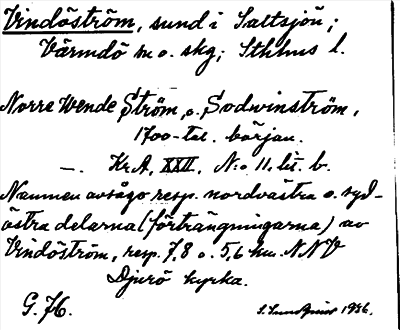 Vindöström, sund i Saltsjön;
Värmdö m o. skg; Sthlms l.
Norre Wende Ström, o. Sodwinström,
1700-tal. början.
—. Kr A, XXII, N:o 11, lit. b.
Namnen avsågo resp. nordvästra o. syd-
östra delarna (förträngningarna) av
Vindöström, resp. 7,8 o. 5,6 km. NNV
Djurö kyrka.
G. 76. 1936.